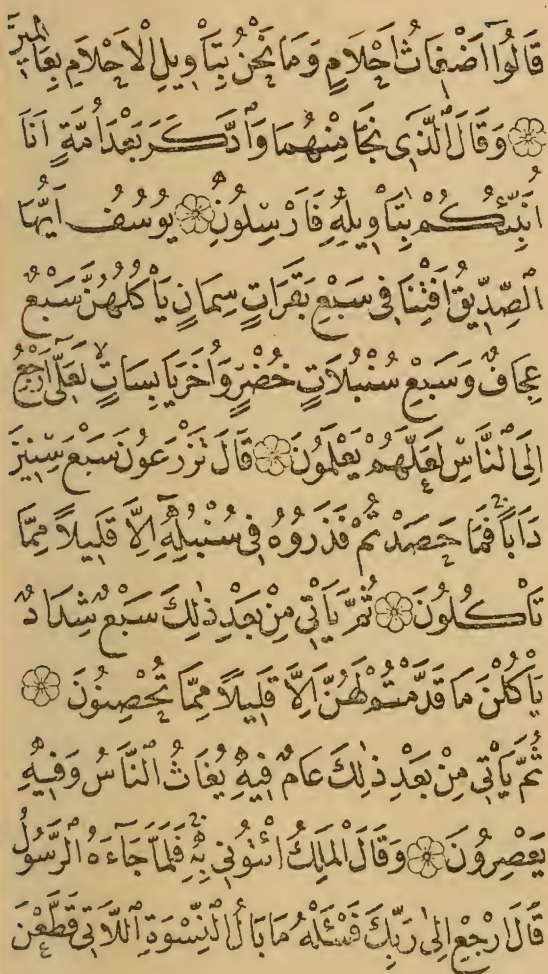 قَالُوا اَضْغَاثُ اَحْلَامٍ وَمَا نَحْنُ بِتَأْوِيلِ الْاَحْلَامِ بِعَالِمِينَ
۞ وَقَالَ الَّذِى نَجَا مِنْهُمَا وَادَّكَرَ بَعْدَ اُمَّةٍ اَنَا
اُنَبِّئُكُمْ بِتَأْوِيلِهِ فَاَرْسِلُونِ ۞ يُوسُفُ اَيُّهَا
الصِّدِّيقُ اَفْتِنَا فِى سَبْعِ بَقَرَاتٍ سِمَانٍ يَأْكُلُهُنَّ سَبْعٌ
عِجَافٌ وَسَبْعِ سُنْبُلَاتٍ خُضْرٍ وَاُخَرَ يَابِسَاتٍ لَعَلِّى اَرْجِعُ
اِلَى النَّاسِ لَعَلَّهُمْ يَعْلَمُونَ ۞ قَالَ تَزْرَعُونَ سَبْعَ سِنِينَ
دَاَبًا فَمَا حَصَدْتُمْ فَذَرُوهُ فِى سُنْبُلِهِ اِلَّا قَلِيلًا مِمَّا
تَأْكُلُونَ ۞ ثُمَّ يَأْتِى مِنْ بَعْدِ ذٰلِكَ سَبْعٌ شِدَادٌ
يَأْكُلْنَ مَا قَدَّمْتُمْ لَهُنَّ اِلَّا قَلِيلًا مِمَّا تُحْصِنُونَ ۞
ثُمَّ يَأْتِى مِنْ بَعْدِ ذٰلِكَ عَامٌ فِيهِ يُغَاثُ النَّاسُ وَفِيهِ
يَعْصِرُونَ ۞ وَقَالَ الْمَلِكُ ائْتُونِى بِهِ فَلَمَّا جَاءَهُ الرَّسُولُ
قَالَ ارْجِعْ اِلٰى رَبِّكَ فَسْئَلْهُ مَا بَالُ النِّسْوَةِ اللَّاتِى قَطَّعْنَ